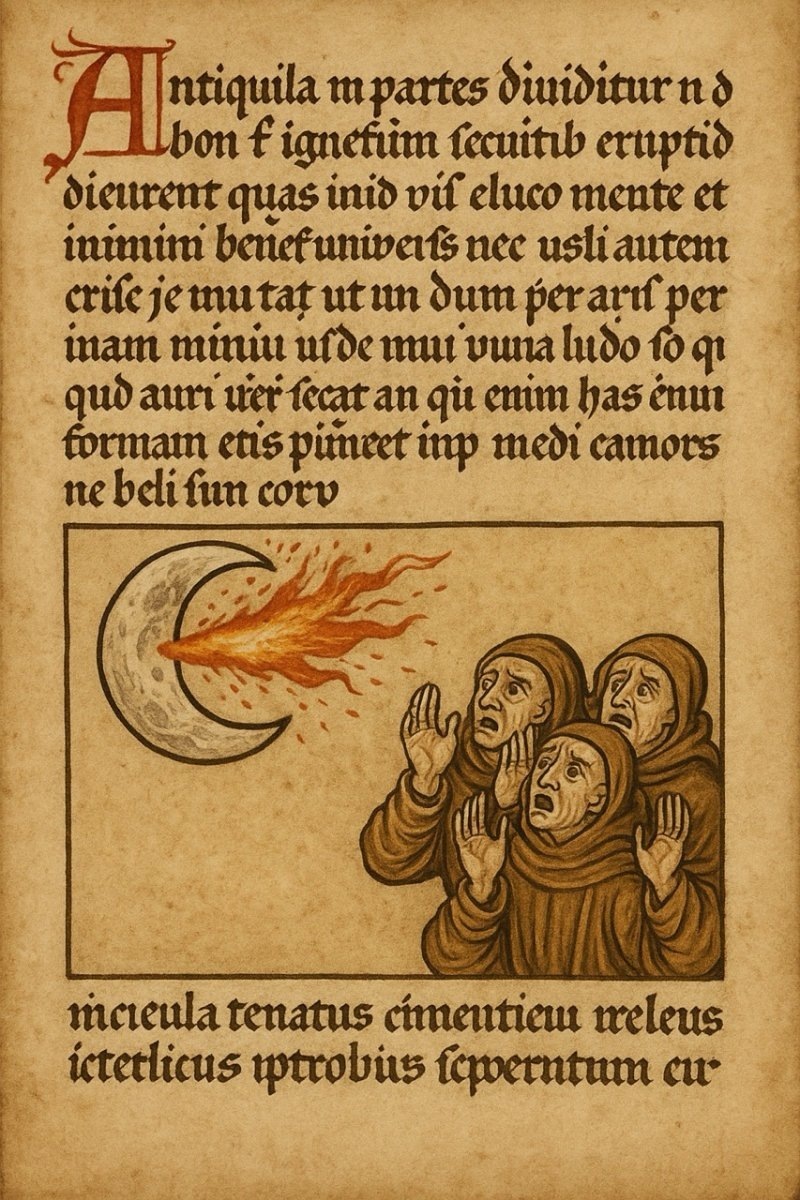 Antiquila m partes diuiditur n d
bon f ignefům ſecuitıb eruptid
dieurent quas inid viſ eluco mente et
inimini beňefuniveıſs nec usli autem
criſe je mutaț ut un dum per arıſ per
inam miniu uſde mui vuna ludo ſo qı
qud auri ůeř ſecat an qu enim has enuı
formam etis pim̃eet inp medi camors
ne beli ſun corv
incieula tenatus cimentiem ıreleus
ictetlicus ıptrobius ſcpverntum eır